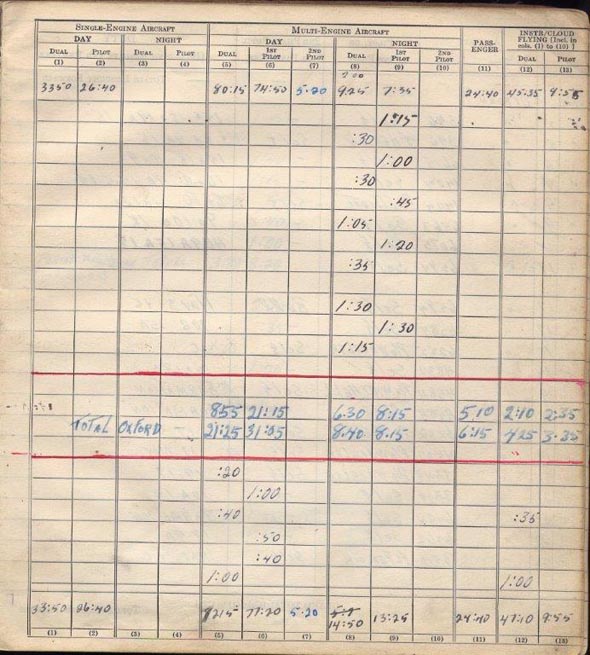 SINGLE-ENGINE AIRCRAFT MULTI-ENGINE AIRCRAFT PASSENGER INSTR/CLOUD FLYING (Incl. in cols. (1) to (10) )
DAY NIGHT DAY NIGHT
DUAL PILOT DUAL PILOT DUAL 1ST PILOT 2ND PILOT DUAL 1ST PILOT 2ND PILOT DUAL PILOT
(1) (2) (3) (4) (5) (6) (7) (8) (9) (10) (11) (12) (13)
3350 26:40 80:15 74:50 5.20 9.25 7:35 24:40 45.35 9:55
1:15
:30
1:00
:30
:45
1:05
1:20
:35
1:30
1:30
1:15
855 21:15 6.30 8:15 5 10 2:10 2:35
TOTAL OXFORD - 21:25 31:35 8.40 8.15 6:15 425 3.35
:20
1:00
:40 :35
:50
:40
1:00 1:00
33:50 26:40 77:20 5.20 14:50 15:25 24:40 47:10 9:55
(1) (2) (3) (4) (5) (6) (7) (8) (9) (10) (11) (12) (13)